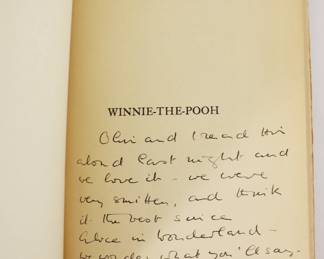 WINNIE-THE-POOH
Olin and I read this
aloud last night and
we love it - we were
very smitten, and think
it the best since
Alice in Wonderland -
we wonder what you'll say -